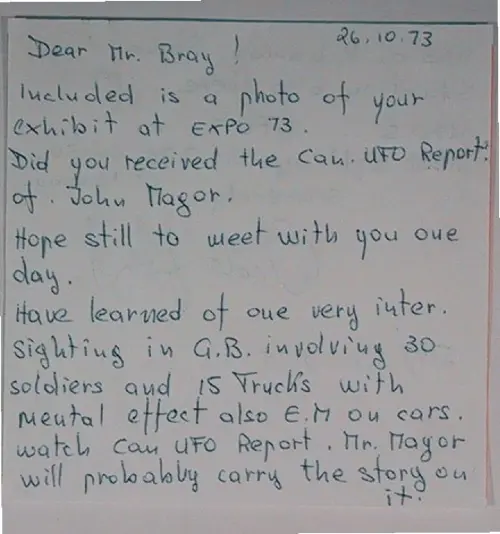 26.10.73
Dear Mr. Bray!
Included is a photo of your
exhibit at EXPO 73.
Did you received the Can. UFO Report.
of. John Magor.
Hope still to meet with you one
day.
Have learned of one very inter.
Sighting in G.B. involving 30
soldiers and 15 Trucks with
mental effect also E.M on cars.
watch Can UFO Report. Mr. Magor
will probably carry the story on
it.